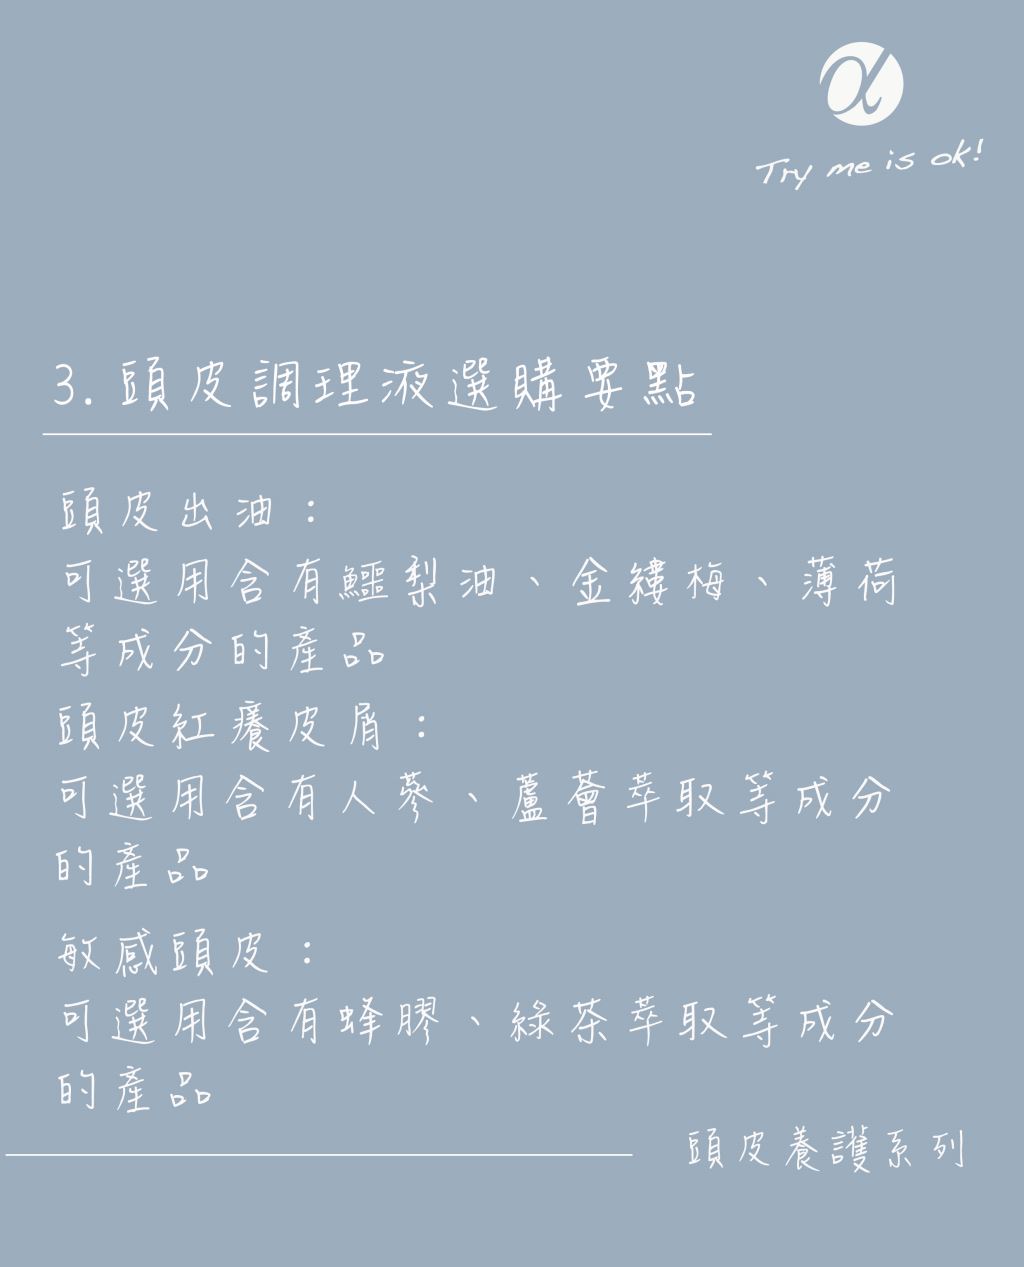 α
Try me is ok!
3. 頭皮調理液選購要點
頭皮出油：
可選用含有鱷梨油、金縷梅、薄荷
等成分的產品
頭皮紅癢皮屑：
可選用含有人蔘、蘆薈萃取等成分
的產品
敏感頭皮：
可選用含有蜂膠、綠茶萃取等成分
的產品
頭皮養護系列